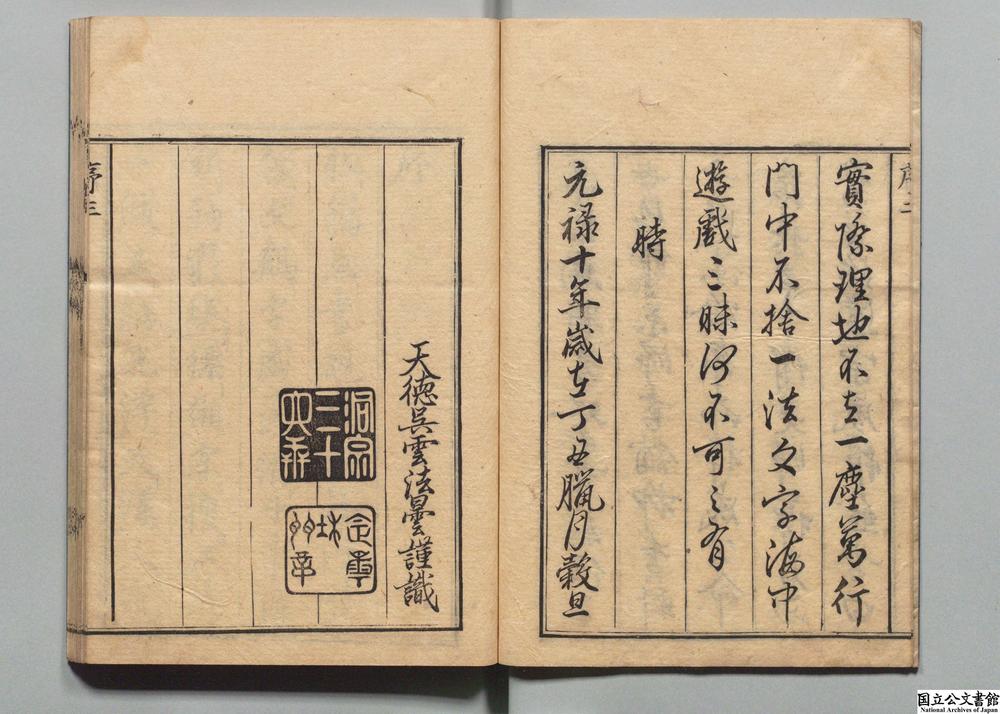 序二
實際理地不立一塵萬行
門中不捨一法文字海中
遊戲三昧何不可之有
時
元禄十年歲在丁丑臘月穀旦
天徳呉雲法曇謹識
序三
国立公文書館
National Archives of Japan